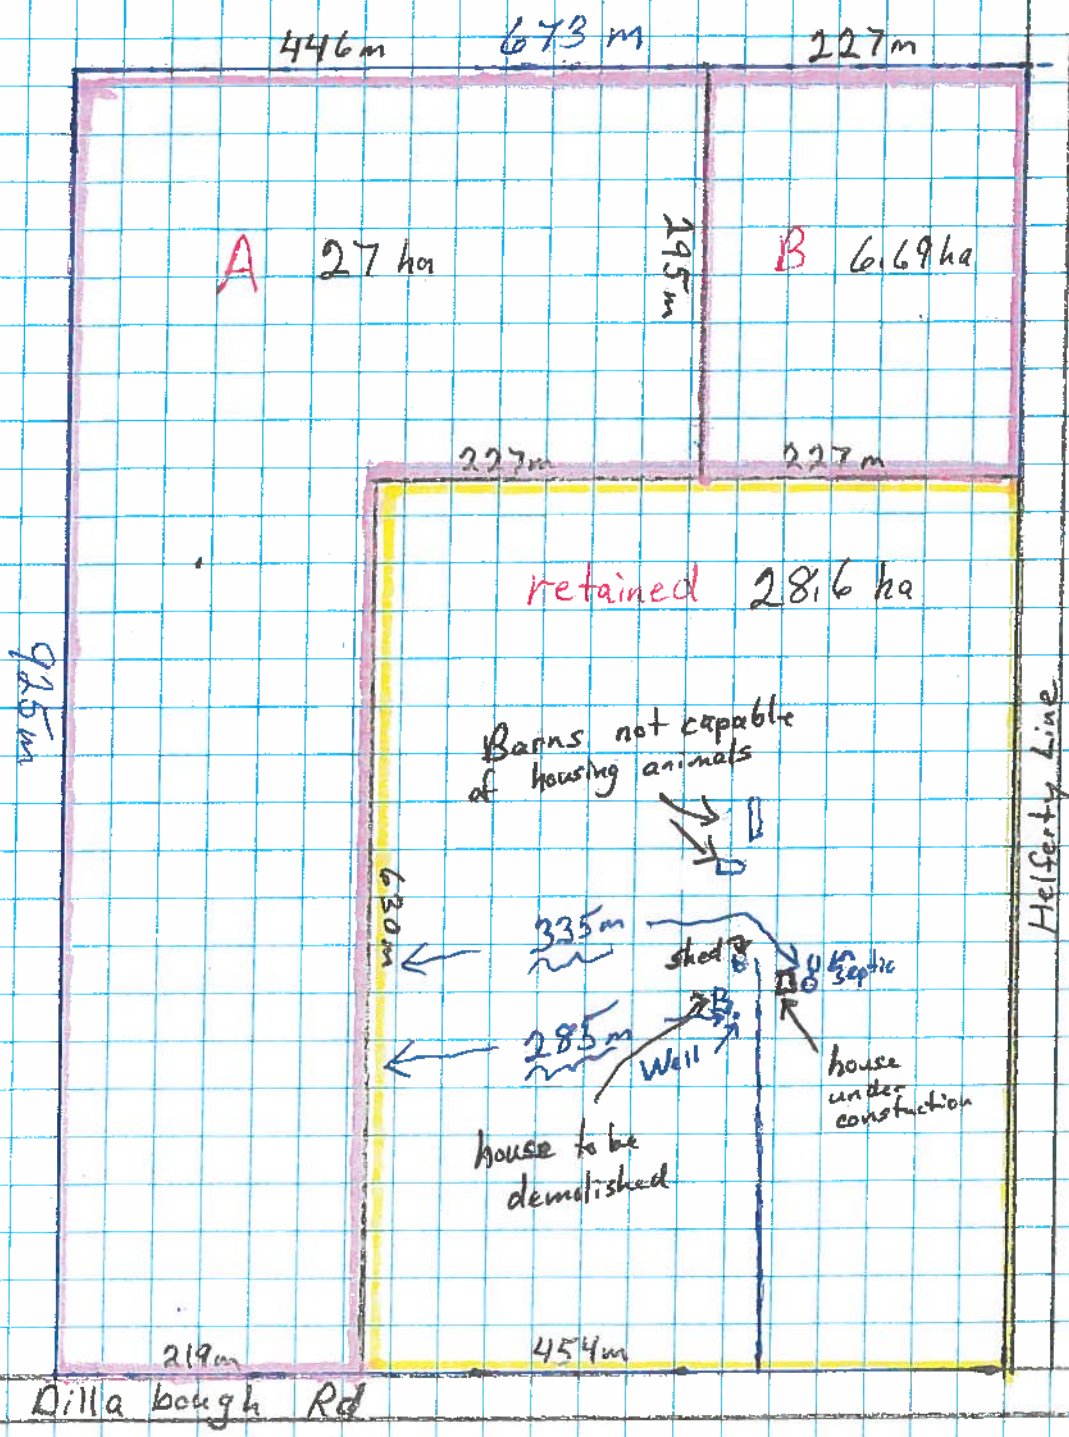 446m 673 m 227m
A 27 ha
295m
B 6.69 ha
227m 227m
retained 28.6 ha
925m
Barns not capable
of housing animals
Helferty Line
630m
335m
shed
septic
285m
Well
house
under
constuction
house to be
demolished
219m 454m
Dilla bough Rd